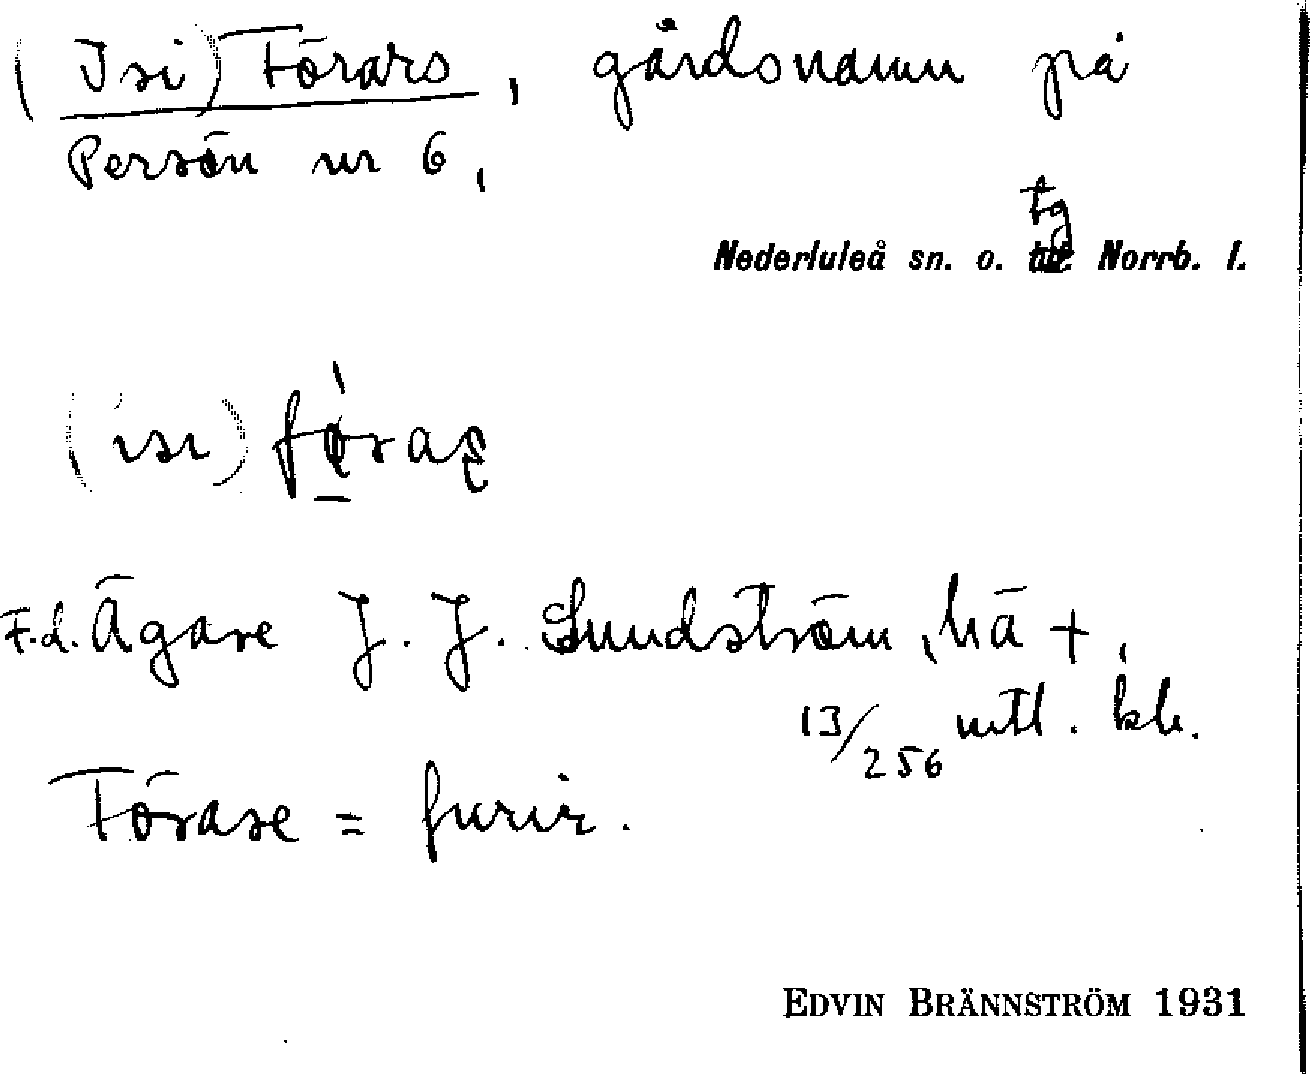 (Isi) Förars, gårdsnamn på
Persön nr 6,
tg
Nederluleå sn. o. Norrb. l.
(isi)
F.d. Ägare J. J. Sundström, hä +,
13/256 mtl. kh.
Förare = furir.
EDVIN BRÄNNSTRÖM 1931